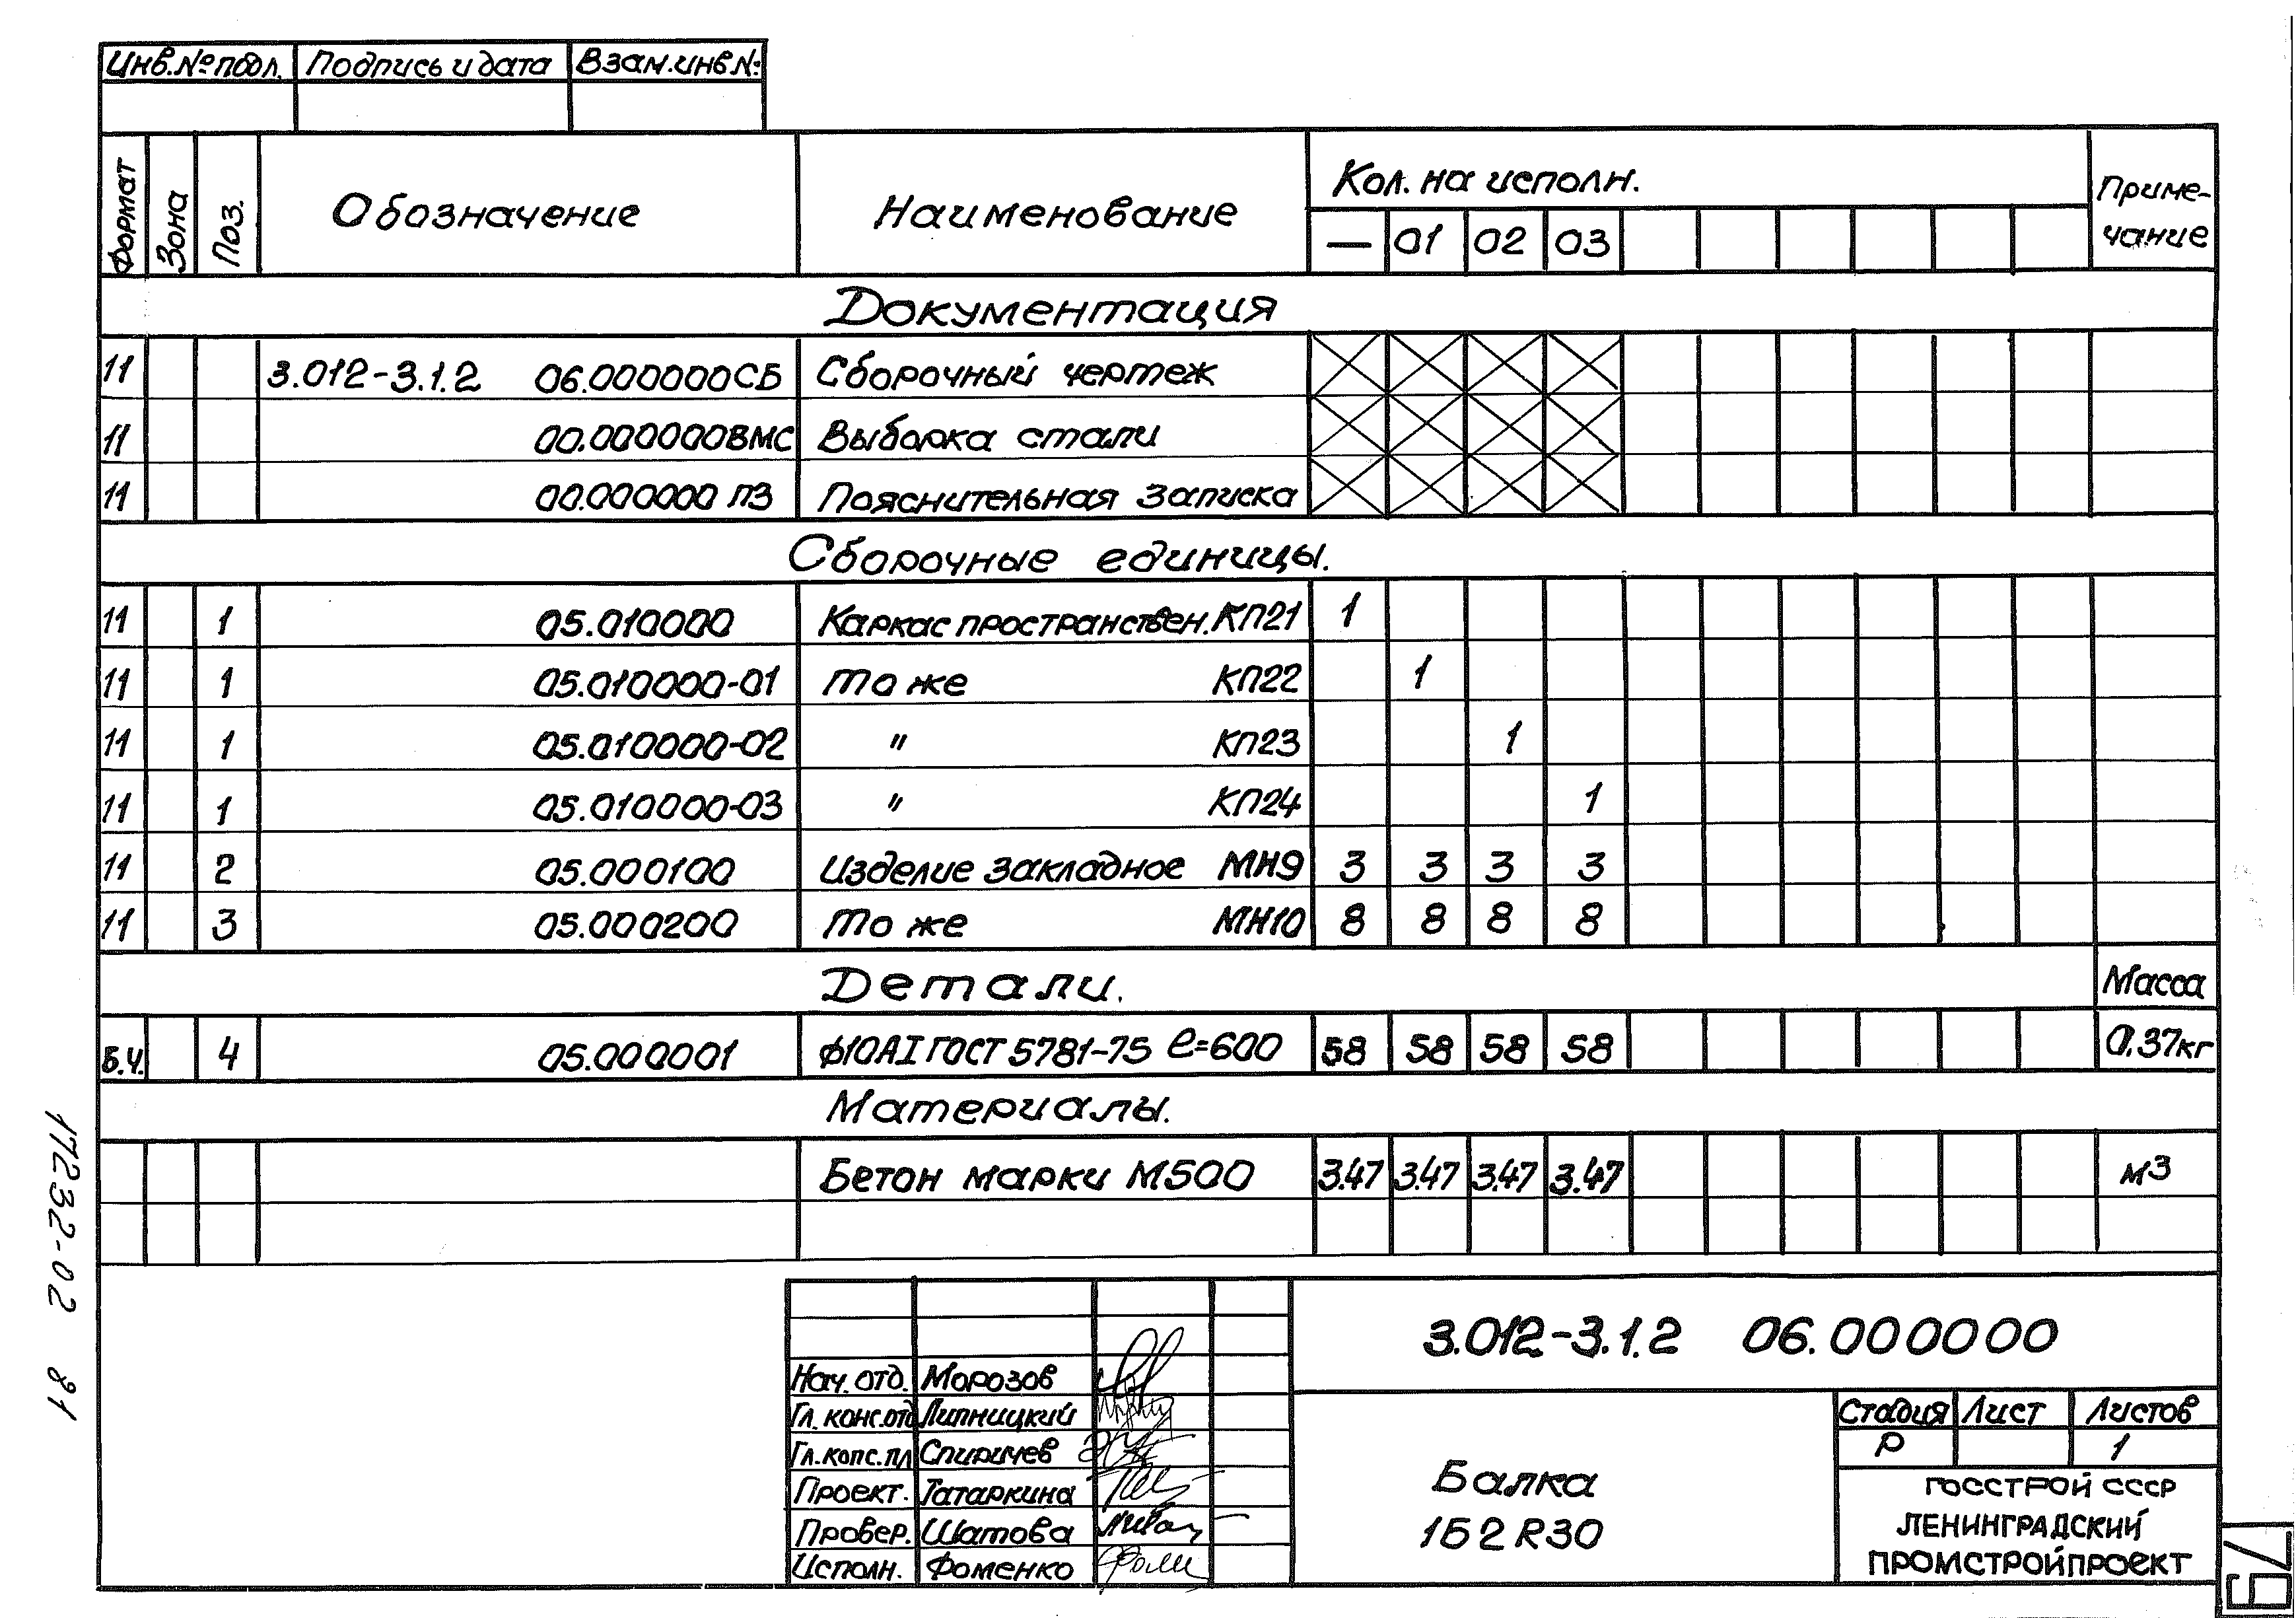 Инв.№ подл. Подпись и дата Взам.инв.№
Формат Зона Поз. Обозначение Наименование Кол. на исполн. Приме-
чание
— 01 02 03
Документация
11 3.012-3.1.2 06.000000СБ Сборочный чертеж
11 00.000000ВМС Выборка стали
11 00.000000 ПЗ Пояснительная записка
Сборочные единицы.
11 1 05.010000 Каркас пространствен. КП21 1
11 1 05.010000-01 То же КП22 1
11 1 05.010000-02 " КП23 1
11 1 05.010000-03 " КП24 1
11 2 05.000100 Изделие закладное МН9 3 3 3 3
11 3 05.000200 То же МН10 8 8 8 8
Детали. Масса
Б.Ч. 4 05.000001 ϕ10АI ГОСТ 5781-75 ℓ=600 58 58 58 58 0.37кг
Материалы.
Бетон марки М500 3.47 3.47 3.47 3.47 м3
17232-02 81
3.012-3.1.2 06.000000
Нач. отд. Морозов
Гл. конс.отд Липницкий
Гл. конс. пл Спиричев
Проект. Татаркина
Провер. Шатова
Исполн. Фоменко
Балка
1Б2R30
Стадия Лист Листов
Р 1
ГОССТРОЙ СССР
ЛЕНИНГРАДСКИЙ
ПРОМСТРОЙПРОЕКТ
79